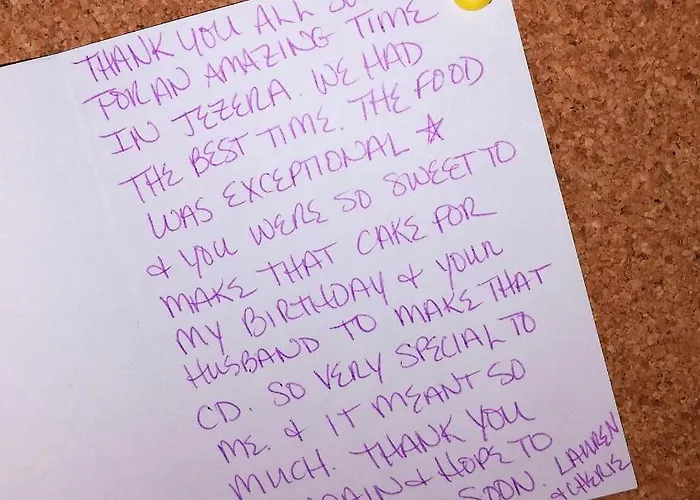 THANK YOU ALL SO
FOR AN AMAZING TIME
IN JEZERA. WE HAD
THE BEST TIME. THE FOOD
WAS EXCEPTIONAL ☆
& YOU WERE SO SWEET TO
MAKE THAT CAKE FOR
MY BIRTHDAY & YOUR
HUSBAND TO MAKE THAT
CD. SO VERY SPECIAL TO
ME. & IT MEANT SO
MUCH. THANK YOU
AGAIN & HOPE TO
SOON. LAUREN
& CHERIE